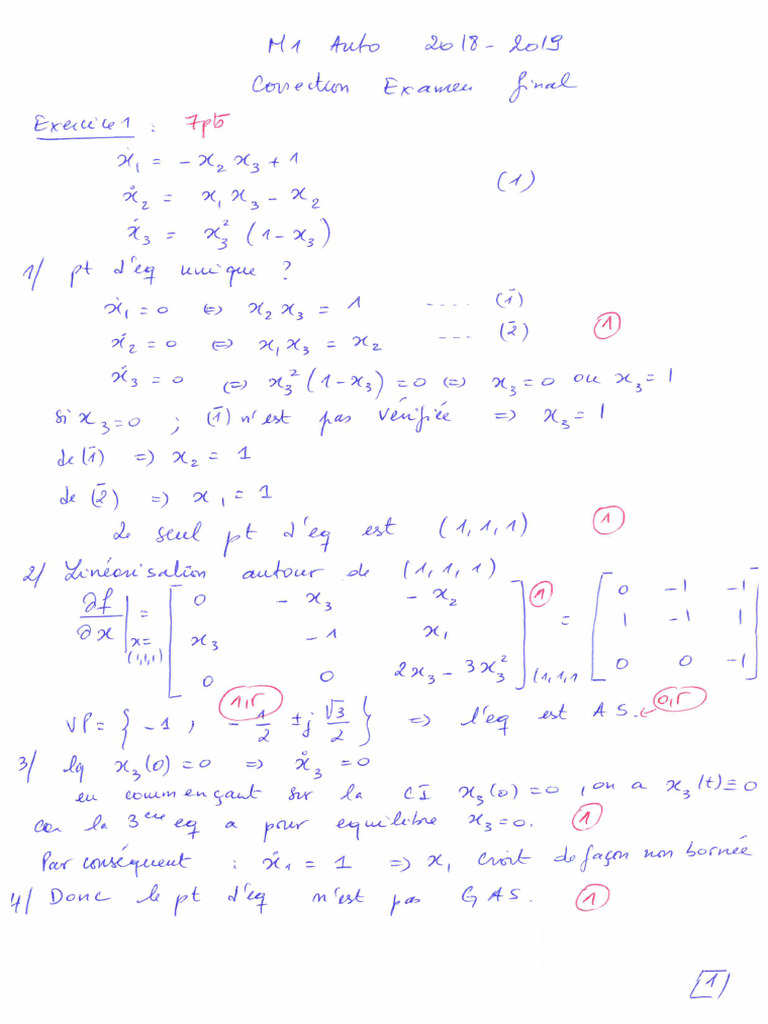 M1 Auto 2018-2019
Correction Examen final
Exercice 1 : 7pts
ẋ₁ = - x₂ x₃ + 1
ẋ₂ = x₁ x₃ - x₂ (1)
ẋ₃ = x₃² (1-x₃)
1/ pt d'eq unique ?
ẋ₁ = 0 ⇔ x₂ x₃ = 1 .... (1̄)
ẋ₂ = 0 ⇔ x₁ x₃ = x₂ ... (2̄) 1
ẋ₃ = 0 ⇔ x₃² (1-x₃) = 0 ⇔ x₃ = 0 ou x₃ = 1
si x₃ = 0 ; (1̄) n'est pas vérifiée ⇒ x₃ = 1
de (1̄) ⇒ x₂ = 1
de (2̄) ⇒ x₁ = 1
Le seul pt d'eq est (1,1,1) 1
2/ Linéarisation autour de (1,1,1)
∂f/∂x |x=(1,1,1) = [0 -x₃ -x₂ ; x₃ -1 x₁ ; 0 0 2x₃-3x₃²](1,1,1 1 = [0 -1 -1 ; 1 -1 1 ; 0 0 -1]
VP = { -1 , -1/2 ± j √3/2 } 1,5 ⇒ l'eq est A S. 0,5
3/ lq x₃(0) = 0 ⇒ ẋ₃ = 0
en commençant sur la CI x₃(0) = 0 , on a x₃(t) ≡ 0
car la 3eme eq a pour equilibre x₃ = 0. 1
Par conséquent : ẋ₁ = 1 ⇒ x₁ croit de façon non bornée
4/ Donc le pt d'eq n'est pas GAS. 1
1